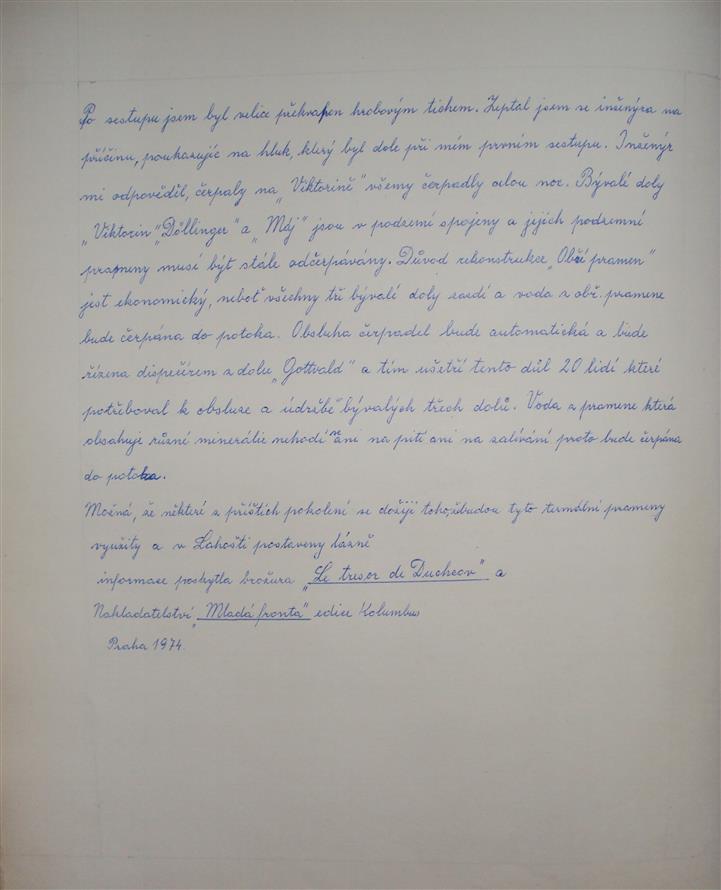 Po sestupu jsem byl velice překvapen hrobovým tichem. Zeptal jsem se inženýra na
příčinu, poukazujíc na hluk, který byl dole při mém prvním sestupu. Inženýr
mi odpověděl, čerpaly na „Viktorině" všemy čerpadly celou noc. Bývalí doly
„Viktorin" „Döllinger" a „Máj" jsou v podzemí spojeny a jejich podzemní
prameny musí být stále odčerpávány. Důvod rekonstrukce „Obří pramen"
jest ekonomický, neboť všechny tři bývalí doly se dí a voda z obř. pramene
bude čerpána do potoka. Obsluha čerpadel bude automatická a bude
řízena dispečírem z dolu „Gottvald" a tím ušetří tento důl 20 lidí které
potřeboval k obsluze a údržbě bývalých třech dolů. Voda z pramene která
obsahuje různé minerálie nehodí se ani na pití ani na zalívání proto bude čerpána
do potoka.
Možná, že některí z příštích pokolení se dožijí toho, že budou tyto termální prameny
využity a v Lahošti postaveny lázně
informace poskytla brožura „Le tresor de Duchcov" a
Nakladatelství „Mladá fronta" edice Kolumbus
Praha 1974.